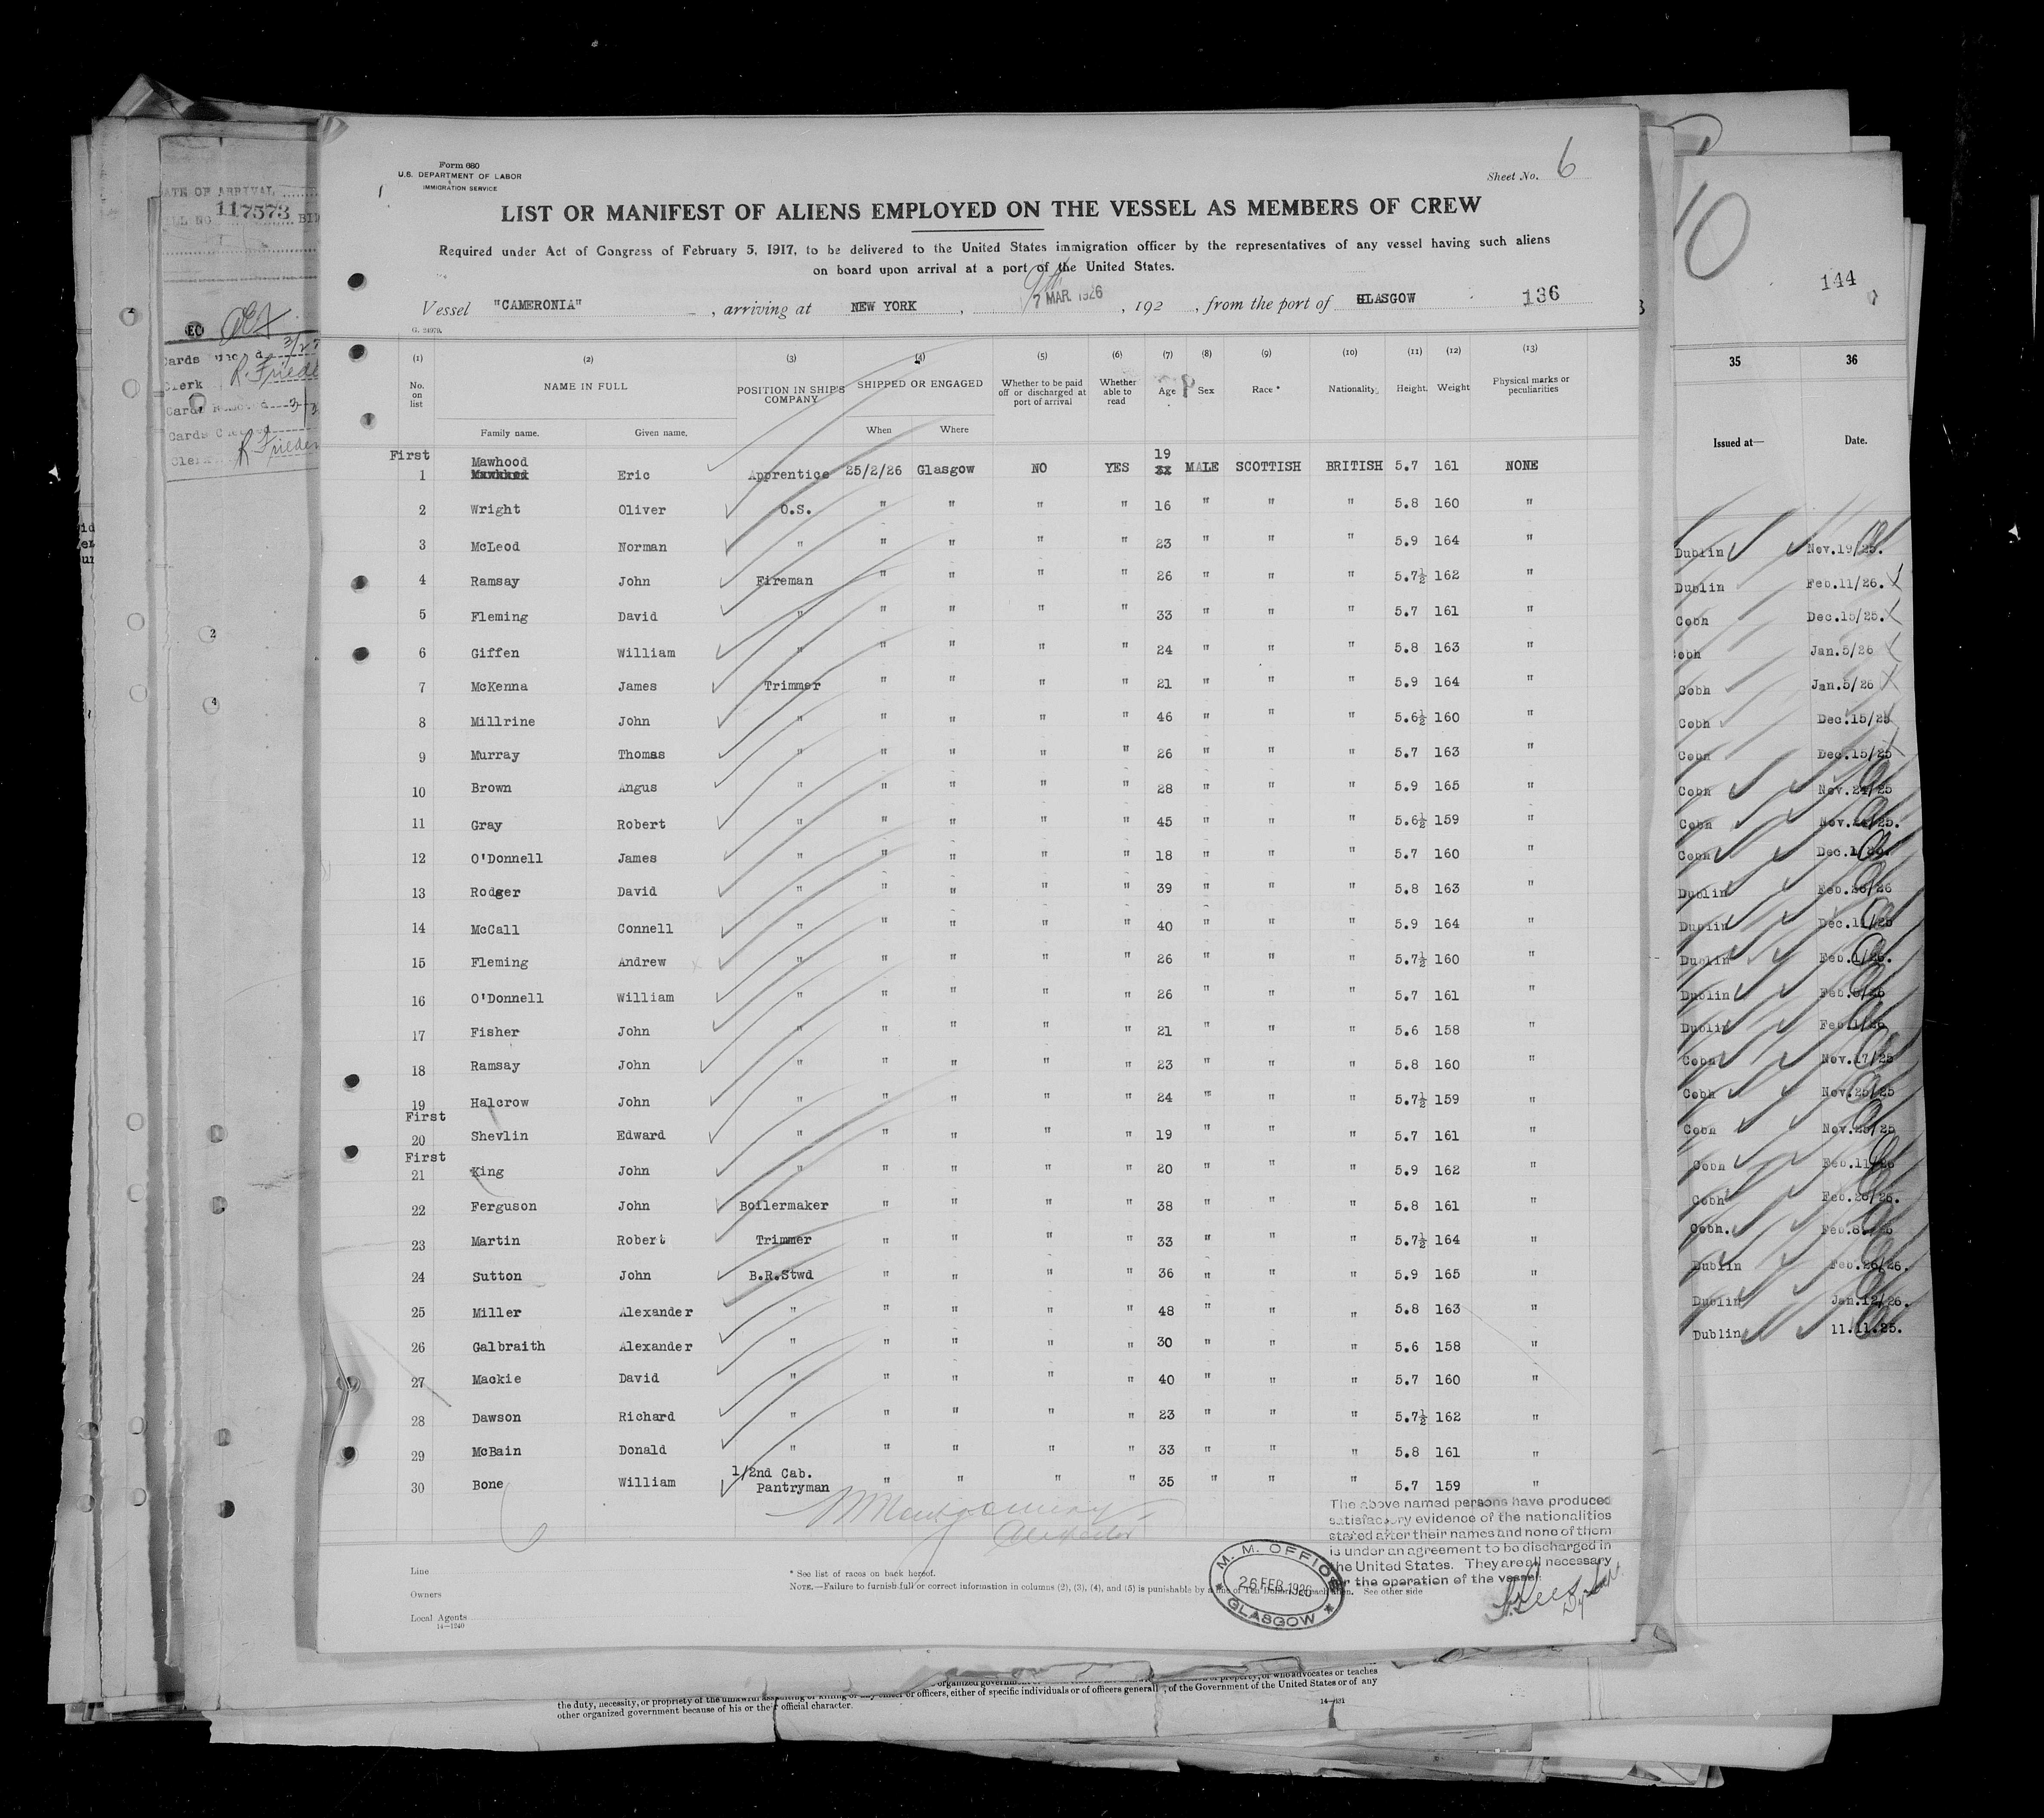 Form 680
U.S. DEPARTMENT OF LABOR
IMMIGRATION SERVICE
Sheet No. 6
LIST OR MANIFEST OF ALIENS EMPLOYED ON THE VESSEL AS MEMBERS OF CREW
Required under Act of Congress of February 5, 1917, to be delivered to the United States immigration officer by the representatives of any vessel having such aliens
on board upon arrival at a port of the United States.
Vessel "CAMERONIA", arriving at NEW YORK, 7 MAR. 1926, 192 , from the port of GLASGOW 136
G. 24979.
(1) (2) (3) (4) (5) (6) (7) (8) (9) (10) (11) (12) (13)
No. on list NAME IN FULL POSITION IN SHIP'S COMPANY SHIPPED OR ENGAGED Whether to be paid off or discharged at port of arrival Whether able to read Age Sex Race * Nationality. Height. Weight Physical marks or peculiarities
Family name. Given name. When Where
First
1 Mawhood Eric Apprentice 25/2/26 Glasgow NO YES 19 MALE SCOTTISH BRITISH 5.7 161 NONE
2 Wright Oliver O.S. " " " " 16 " " " 5.8 160 "
3 McLeod Norman " " " " " 23 " " " 5.9 164 "
4 Ramsay John Fireman " " " " 26 " " " 5.7½ 162 "
5 Fleming David " " " " " 33 " " " 5.7 161 "
6 Giffen William " " " " " 24 " " " 5.8 163 "
7 McKenna James Trimmer " " " " 21 " " " 5.9 164 "
8 Millrine John " " " " " 46 " " " 5.6½ 160 "
9 Murray Thomas " " " " " 26 " " " 5.7 163 "
10 Brown Angus " " " " " 28 " " " 5.9 165 "
11 Gray Robert " " " " " 45 " " " 5.6½ 159 "
12 O'Donnell James " " " " " 18 " " " 5.7 160 "
13 Rodger David " " " " " 39 " " " 5.8 163 "
14 McCall Connell " " " " " 40 " " " 5.9 164 "
15 Fleming Andrew " " " " " 26 " " " 5.7½ 160 "
16 O'Donnell William " " " " " 26 " " " 5.7 161 "
17 Fisher John " " " " " 21 " " " 5.6 158 "
18 Ramsay John " " " " " 23 " " " 5.8 160 "
19 Halcrow John " " " " " 24 " " " 5.7½ 159 "
First
20 Shevlin Edward " " " " " 19 " " " 5.7 161 "
First
21 King John " " " " " 20 " " " 5.9 162 "
22 Ferguson John Boilermaker " " " " 38 " " " 5.8 161 "
23 Martin Robert Trimmer " " " " 33 " " " 5.7½ 164 "
24 Sutton John B.R.Stwd " " " " 36 " " " 5.9 165 "
25 Miller Alexander " " " " " 48 " " " 5.8 163 "
26 Galbraith Alexander " " " " " 30 " " " 5.6 158 "
27 Mackie David " " " " " 40 " " " 5.7 160 "
28 Dawson Richard " " " " " 23 " " " 5.7½ 162 "
29 McBain Donald " " " " " 33 " " " 5.8 161 "
30 Bone William 1/2nd Cab. Pantryman " " " " 35 " " " 5.7 159 "
The above named persons have produced
satisfactory evidence of the nationalities
stated after their names and none of them
is under an agreement to be discharged in
the United States. They are all necessary
for the operation of the vessel.
M. M. OFFICE
26 FEB 1926
GLASGOW
Line
Owners
Local Agents
14—1240
* See list of races on back hereof.
NOTE.—Failure to furnish full or correct information in columns (2), (3), (4), and (5) is punishable by a fine of Ten Dollars each alien. See other side
DATE OF ARRIVAL
117573
EC
Clerk R. Frieden
10
144
35 36
Issued at— Date.
Dublin Nov.19/25.
Dublin Feb.11/26.
Cobh Dec.15/25.
Cobh Jan.5/26
Cobh Jan.5/26
Cobh Dec.15/25
Cobh Dec.15/25
Cobh Nov.24/25
Cobh Nov.24/25.
Cobh
Dublin Feb.26/26
Dublin Dec.11/25
Dublin Feb.1/26.
Dublin
Dublin Feb.1/26
Cobh Nov.17/25
Cobh Nov.25/25
Cobh Nov.25/25
Cobh Feb.11/26
Cobh Feb.26/26.
Cobh.
Dublin Feb.26/26.
Dublin Jan.12/26.
Dublin 11.11.25.
organized government
property, or who advocates or teaches
the duty, necessity, or propriety of the unlawful assaulting or killing of any officer or officers, either of specific individuals or of officers generally, of the Government of the United States or of any
other organized government because of his or their official character.